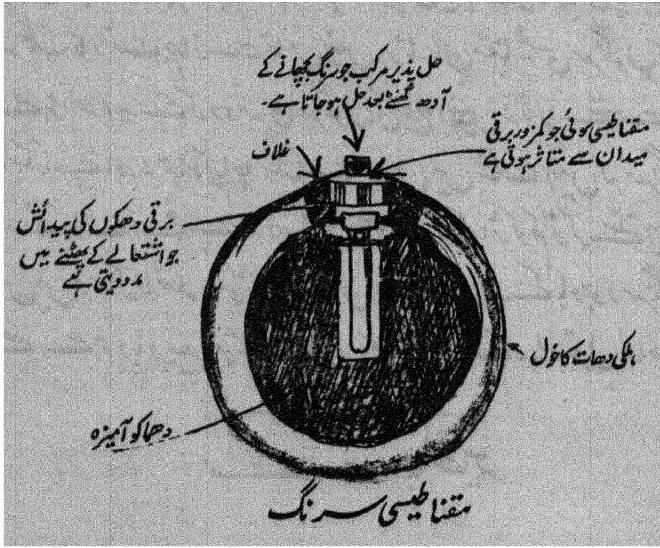 حل پذیر مرکب جو سرنگ بچھانے کے
آدھ گھنٹے بعد حل ہو جاتا ہے۔
مقناطیسی سوئی جو کمزور برقی
میدان سے متاثر ہوتی ہے
غلاف
برقی دھکوں کی پیدائش
جو اشتعالے کے پھٹنے میں
مدد دیتی ہے
ہلکی دھات کا خول
دھماکو آمیزہ
مقناطیسی سرنگ